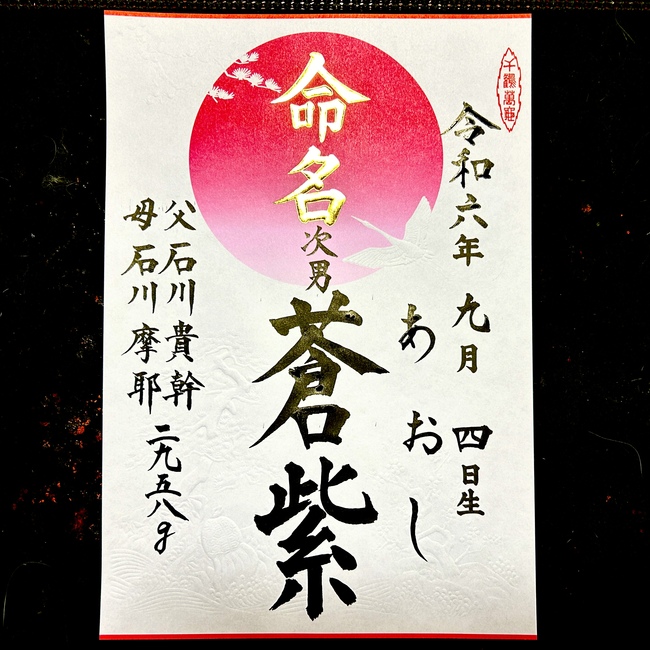 千鶴萬亀
令和六年 九月 四日生
あおし
命名
次男
蒼紫
父 石川 貴幹
母 石川 摩耶
二九五八g